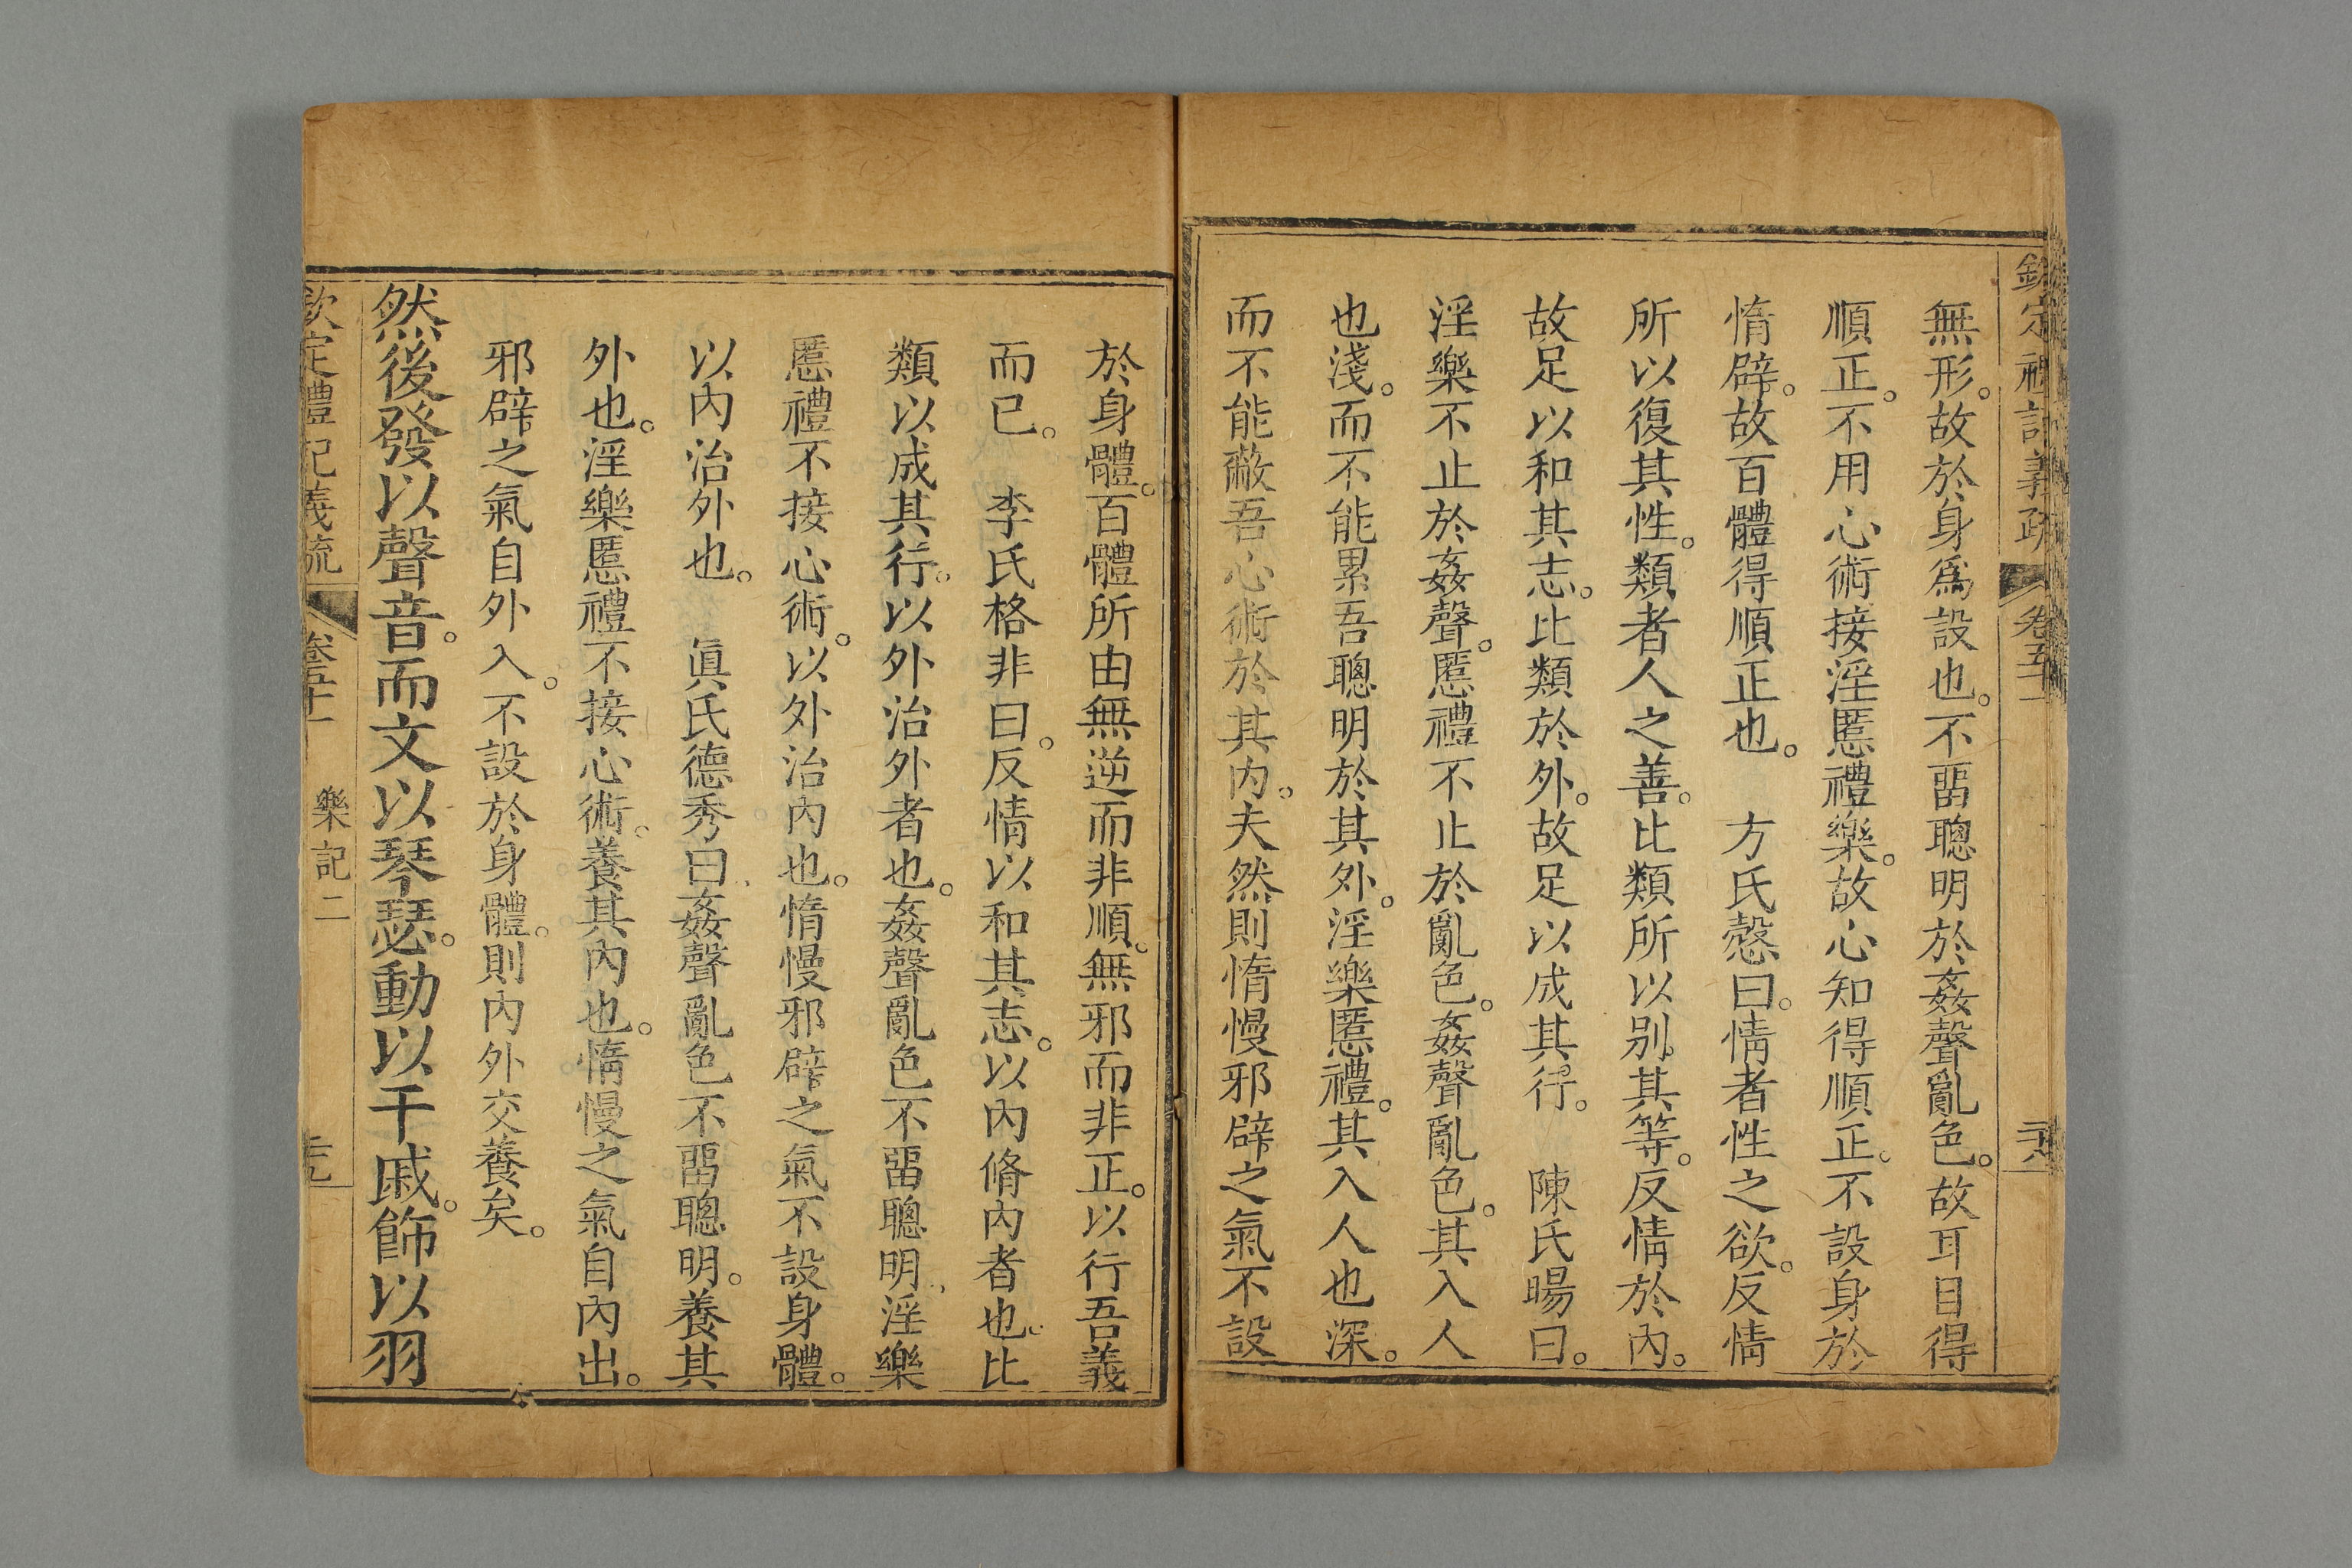 欽定禮記義疏 卷五十一
無形。故於身爲設也。不畱聰明於姦聲亂色。故耳目得
順正。不用心術接淫慝禮樂。故心知得順正。不設身於
惰辟。故百體得順正也。 方氏慤曰。情者性之欲。反情
所以復其性。類者人之善。比類所以别其等。反情於內。
故足以和其志。比類於外。故足以成其行。 陳氏暘曰。
淫樂不止於姦聲。慝禮不止於亂色。姦聲亂色。其入人
也淺。而不能累吾聰明於其外。淫樂慝禮。其入人也深。
而不能蔽吾心術於其內。夫然則惰慢邪辟之氣不設
於身體。百體所由無逆而非順。無邪而非正。以行吾義
而已。 李氏格非曰。反情以和其志。以內脩內者也。比
類以成其行。以外治外者也。姦聲亂色不畱聰明。淫樂
慝禮不接心術。以外治內也。惰慢邪辟之氣不設身體。
以內治外也。 眞氏德秀曰。姦聲亂色不畱聰明。養其
外也。淫樂慝禮不接心術。養其內也。惰慢之氣自內出。
邪辟之氣自外入。不設於身體。則內外交養矣。
然後發以聲音。而文以琴瑟。動以干戚。飾以羽
欽定禮記義疏 卷五十一 樂記二